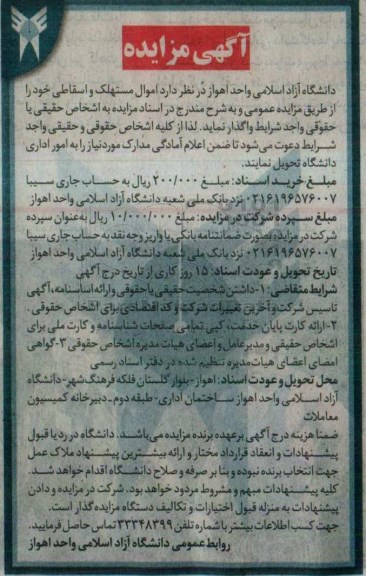 آگهی مزایده
دانشگاه آزاد اسلامی واحد اهواز در نظر دارد اموال مستهلک و اسقاطی خود را
از طریق مزایده عمومی و به شرح مندرج در اسناد مزایده به اشخاص حقیقی یا
حقوقی واجد شرایط واگذار نماید. لذا از کلیه اشخاص حقوقی و حقیقی واجد
شرایط دعوت می شود تا ضمن اعلام آمادگی مدارک موردنیاز را به امور اداری
دانشگاه تحویل نمایند.
مبلغ خرید اسناد: مبلغ ۲۰۰/۰۰۰ ریال به حساب جاری سیبا
۰۲۱۶۱۹۶۵۷۶۰۰۷ نزد بانک ملی شعبه دانشگاه آزاد اسلامی واحد اهواز
مبلغ سپرده شرکت در مزایده: مبلغ ۱۰/۰۰۰/۰۰۰ ریال به عنوان سپرده
شرکت در مزایده بصورت ضمانتنامه بانکی یا واریز وجه نقد به حساب جاری سیبا
۰۲۱۶۱۹۶۵۷۶۰۰۷ نزد بانک ملی شعبه دانشگاه آزاد اسلامی واحد اهواز
تاریخ تحویل و عودت اسناد: ۱۵ روز کاری از تاریخ درج آگهی
شرایط متقاضی: ۱-داشتن شخصیت حقیقی یا حقوقی و ارائه اساسنامه، آگهی
تاسیس شرکت و آخرین تغییرات شرکت و کد اقتصادی برای اشخاص حقوقی.
۲-ارائه کارت پایان خدمت، کپی تمامی صفحات شناسنامه و کارت ملی برای
اشخاص حقیقی و مدیرعامل و اعضای هیات مدیره اشخاص حقوقی ۳-گواهی
امضای اعضای هیات مدیره تنظیم شده در دفتر اسناد رسمی
محل تحویل و عودت اسناد: اهواز-بلوار گلستان فلکه فرهنگ شهر-دانشگاه
آزاد اسلامی واحد اهواز ساختمان اداری-طبقه دوم-دبیرخانه کمیسیون
معاملات
ضمنا هزینه درج آگهی برعهده برنده مزایده می باشند. دانشگاه در رد یا قبول
پیشنهادات و انعقاد قرارداد مختار و ارائه بیشترین پیشنهاد ملاک عمل
جهت انتخاب برنده نبوده و بنا بر صرفه و صلاح دانشگاه اقدام خواهد شد.
کلیه پیشنهادات مبهم و مشروط مردود خواهد بود. شرکت در مزایده و دادن
پیشنهادات به منزله قبول اختیارات و تکالیف دستگاه مزایده گذار است.
جهت کسب اطلاعات بیشتر با شماره تلفن ۳۳۳۴۸۳۹۹ تماس حاصل فرمایید.
روابط عمومی دانشگاه آزاد اسلامی واحد اهواز